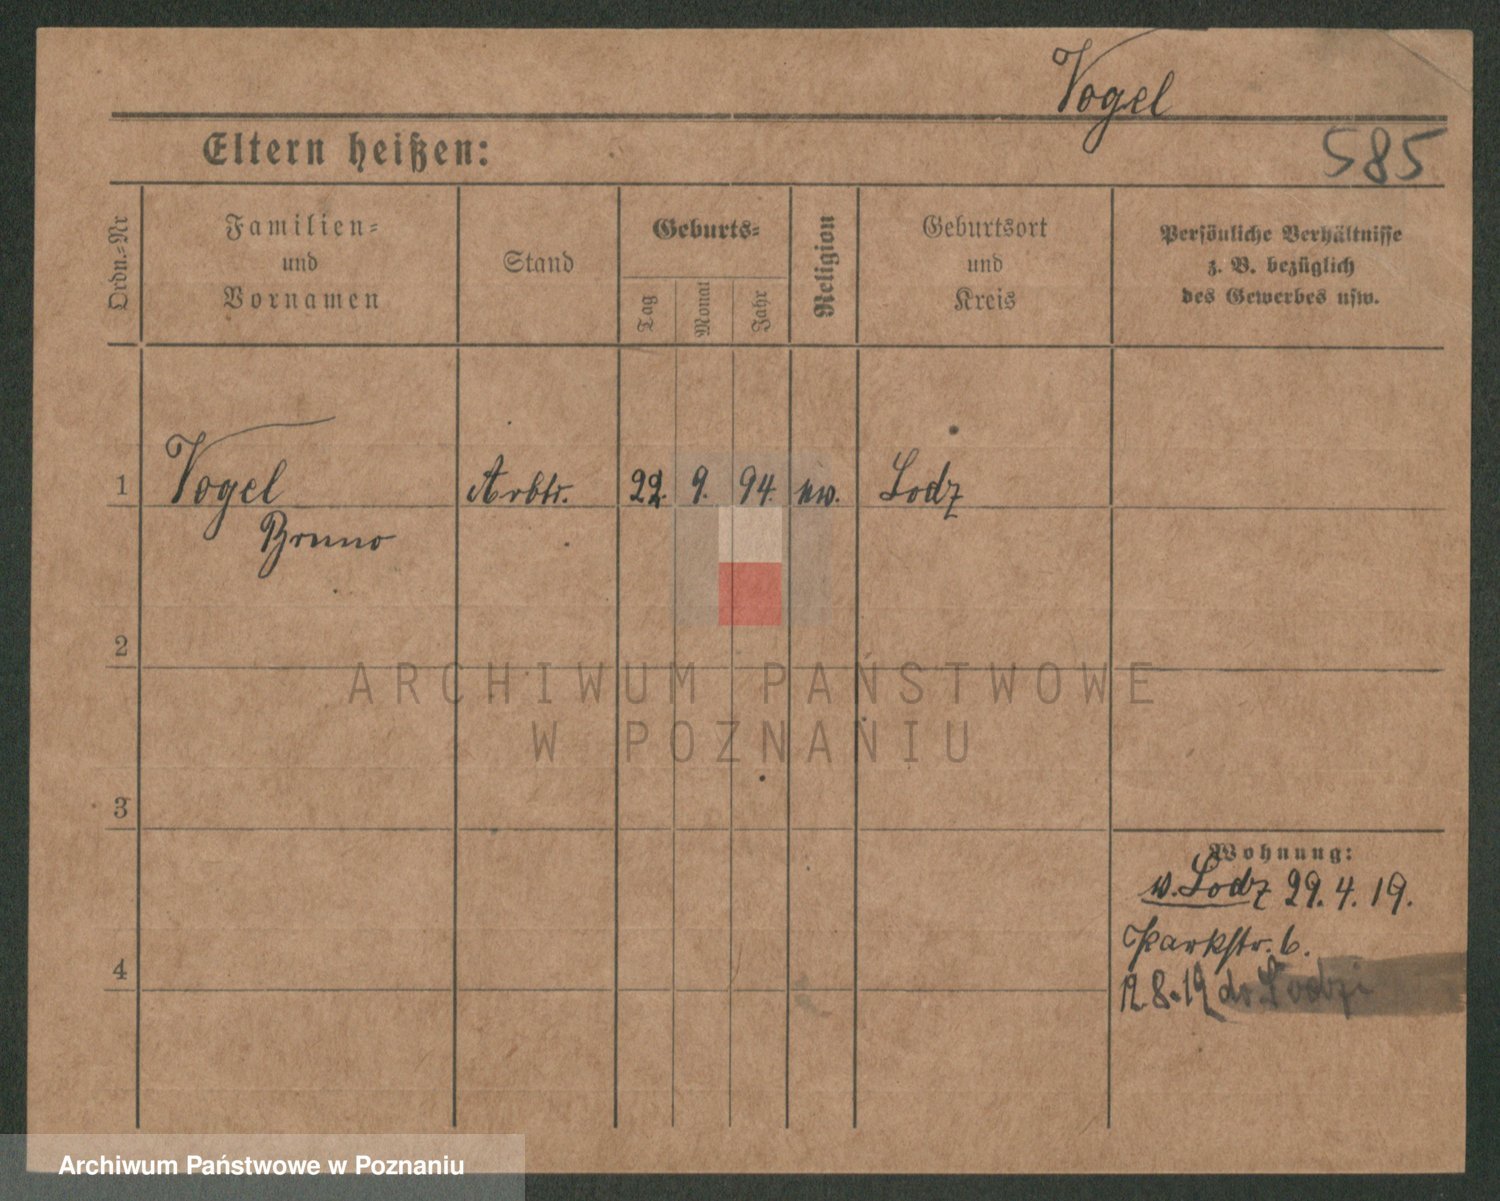 Vogel
585
Eltern heißen:
Ordn.-Nr
Familien-
und
Vornamen
Stand
Geburts-
Tag
Monat
Jahr
Religion
Geburtsort
und
Kreis
Persönliche Verhältnisse
z. B. bezüglich
des Gewerbes usw.
1
Vogel Arbtr. 22. 9. 94. Lodz
Bruno
2
ARCHIWUM PAŃSTWOWE
W POZNANIU
3
Wohnung:
v. Lodz 29. 4. 19.
Parkstr. 6.
4
12.8.19 do Łodzi
Archiwum Państwowe w Poznaniu